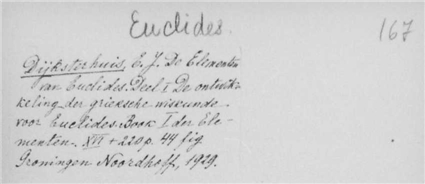 Euclides.
167
Dijksterhuis, E. J. De Elementen
van Euclides. Deel I De ontwik-
keling der grieksche wiskunde
voor Euclides. Book I der Ele-
menten. XVI + 220 p. 44 fig.
Groningen Noordhoff, 1929.